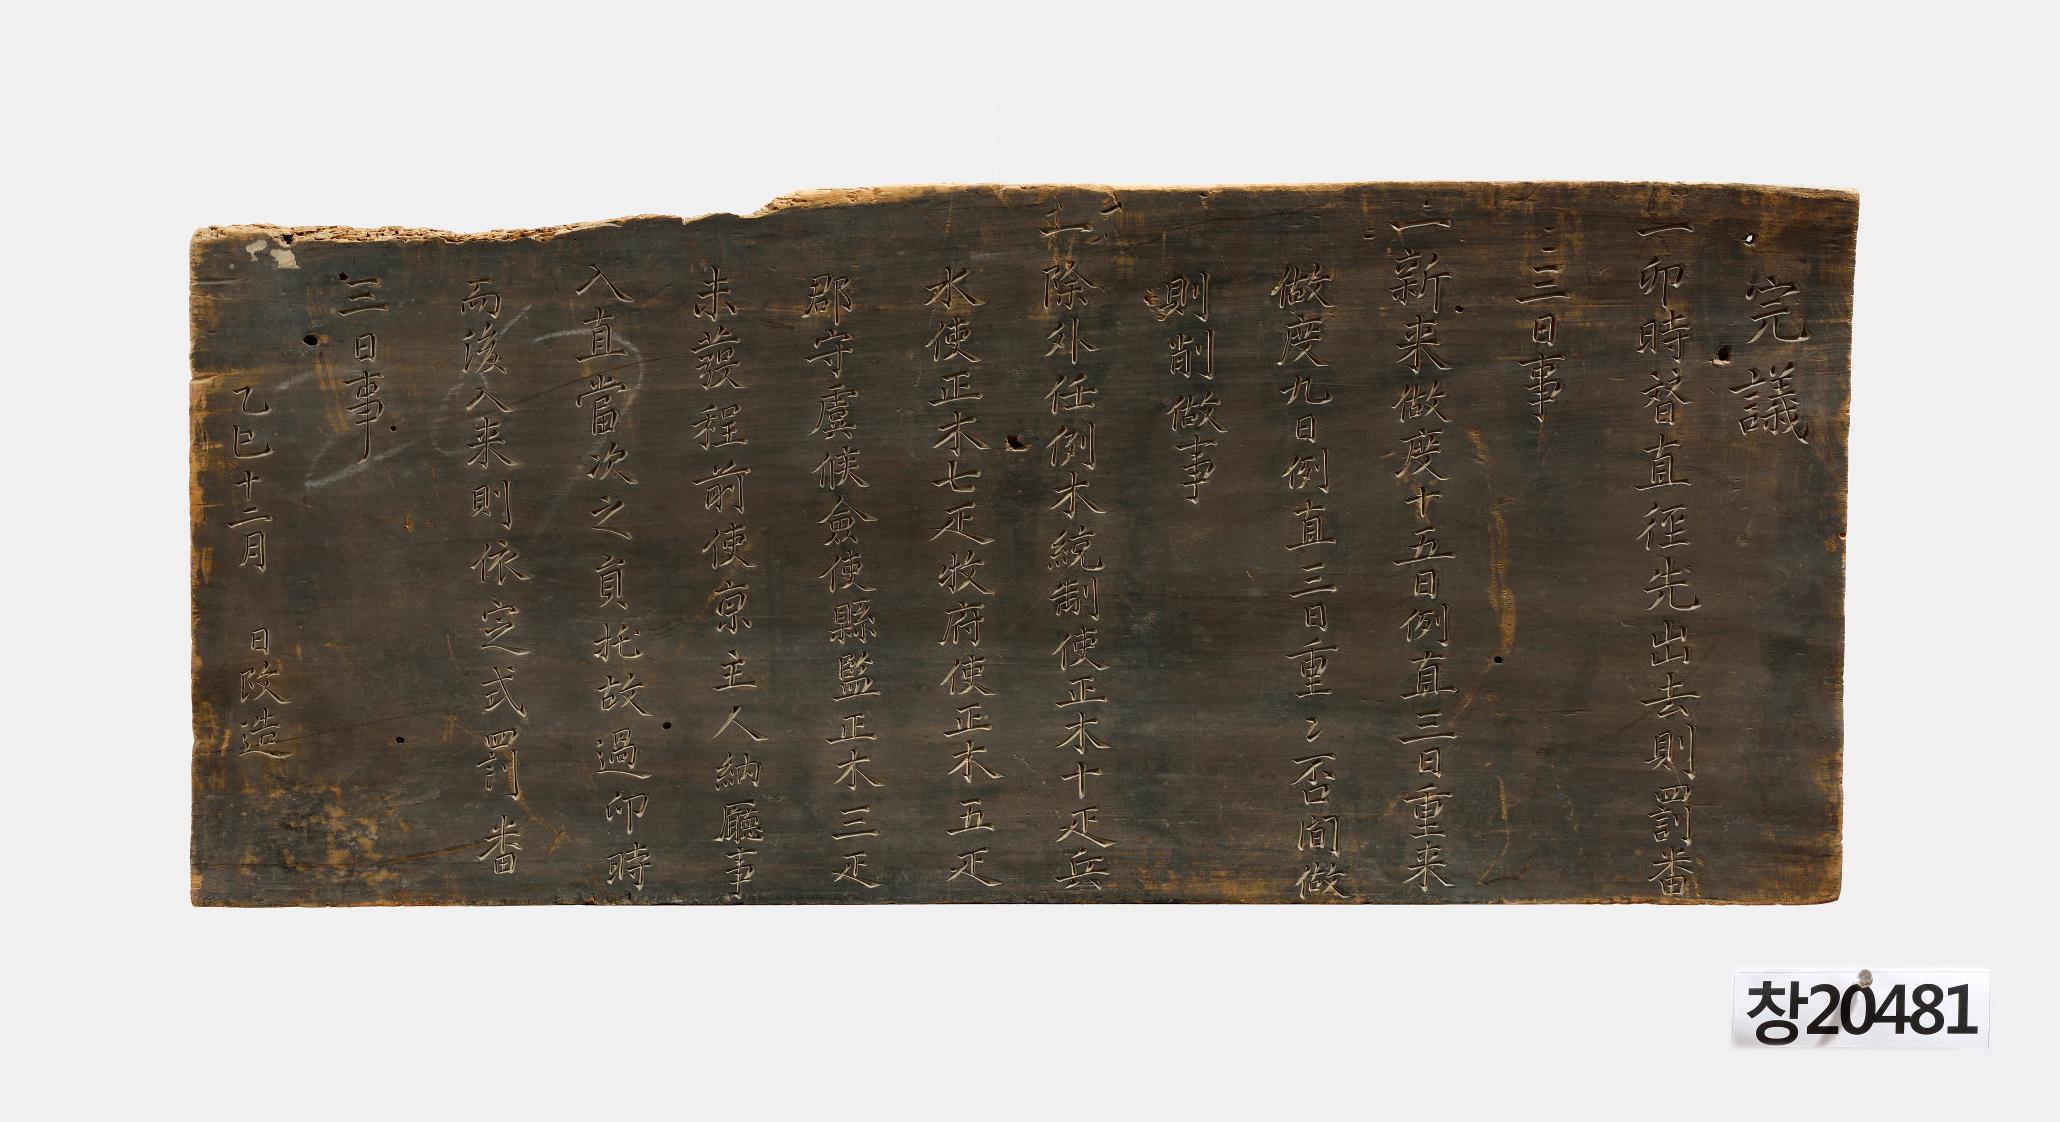 完議
一卯時替直徑先出去則罰番
三日事
一新来做度十五日例直三日重来
做度九日例直三日重〻否間做
則削做事
一除外任例木統制使正木十疋兵
水使正木七疋牧府使正木五疋
郡守虞候僉使縣監正木三疋
未發程前使京主人納廳事
入直當次之員托故過卯時
而後入来則依定式罰番
三日事
乙巳十二月 日改造
창20481